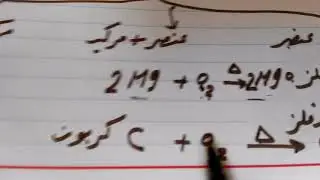 عنصر عنصر + مرکب
فلز 2Mg + O₂ →Δ 2MgO
کربون C + O₂ →Δ